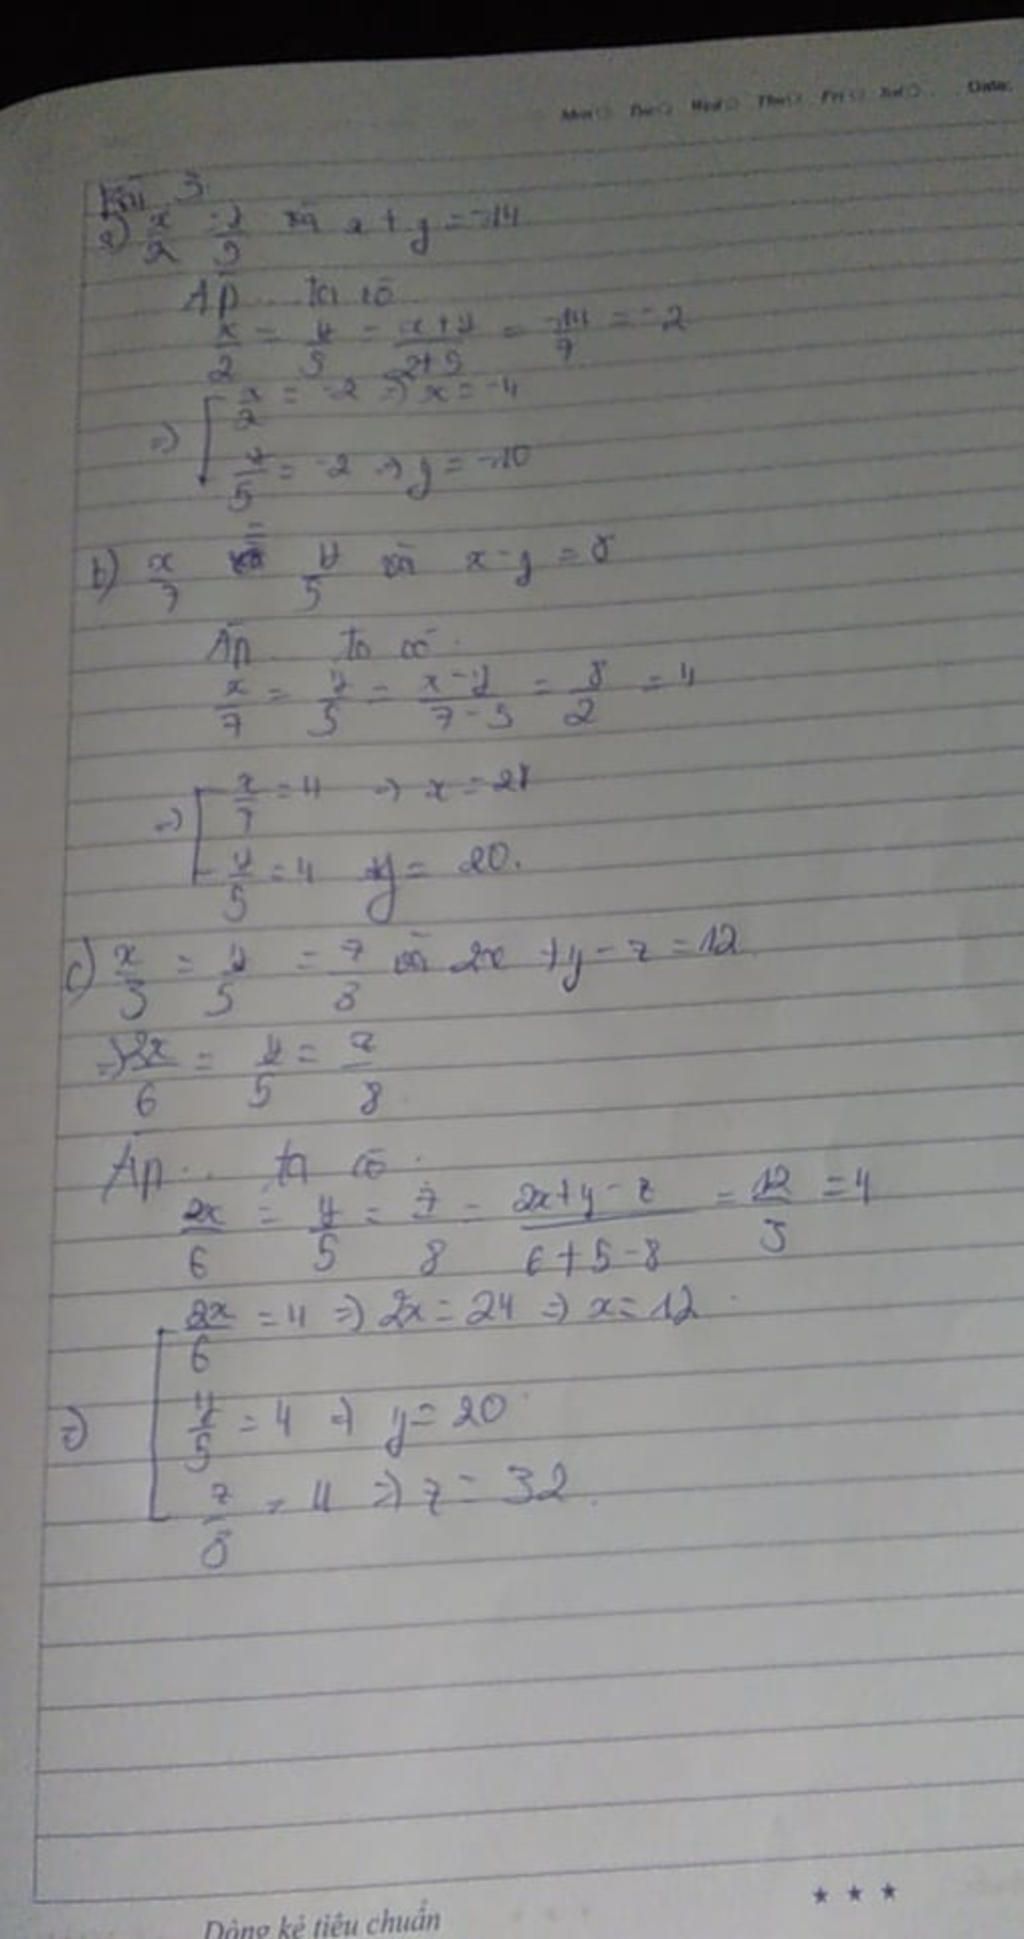 Mon Tue Wed Thu Fri Sat Date:
Bài 3.
a) x/2 = y/5 và x + y = -14
Áp ... ta có
x/2 = y/5 = x+y/2+5 = -14/7 = -2
=> [ x/2 = -2 => x = -4
y/5 = -2 => y = -10
b) x/7 = y/5 và x - y = 8
Áp ... ta có.
x/7 = y/5 = x-y/7-5 = 8/2 = 4
=> [ x/7 = 4 => x = 28
y/5 = 4 y = 20.
c) x/3 = y/5 = z/8 và 2x + y - z = 12
=> 2x/6 = y/5 = z/8
Áp ... ta có.
2x/6 = y/5 = z/8 = 2x+y-z/6+5-8 = 12/3 = 4
=> [ 2x/6 = 4 => 2x = 24 => x = 12.
y/5 = 4 => y = 20
z/8 = 4 => z = 32.
★ ★ ★
Dòng kẻ tiêu chuẩn